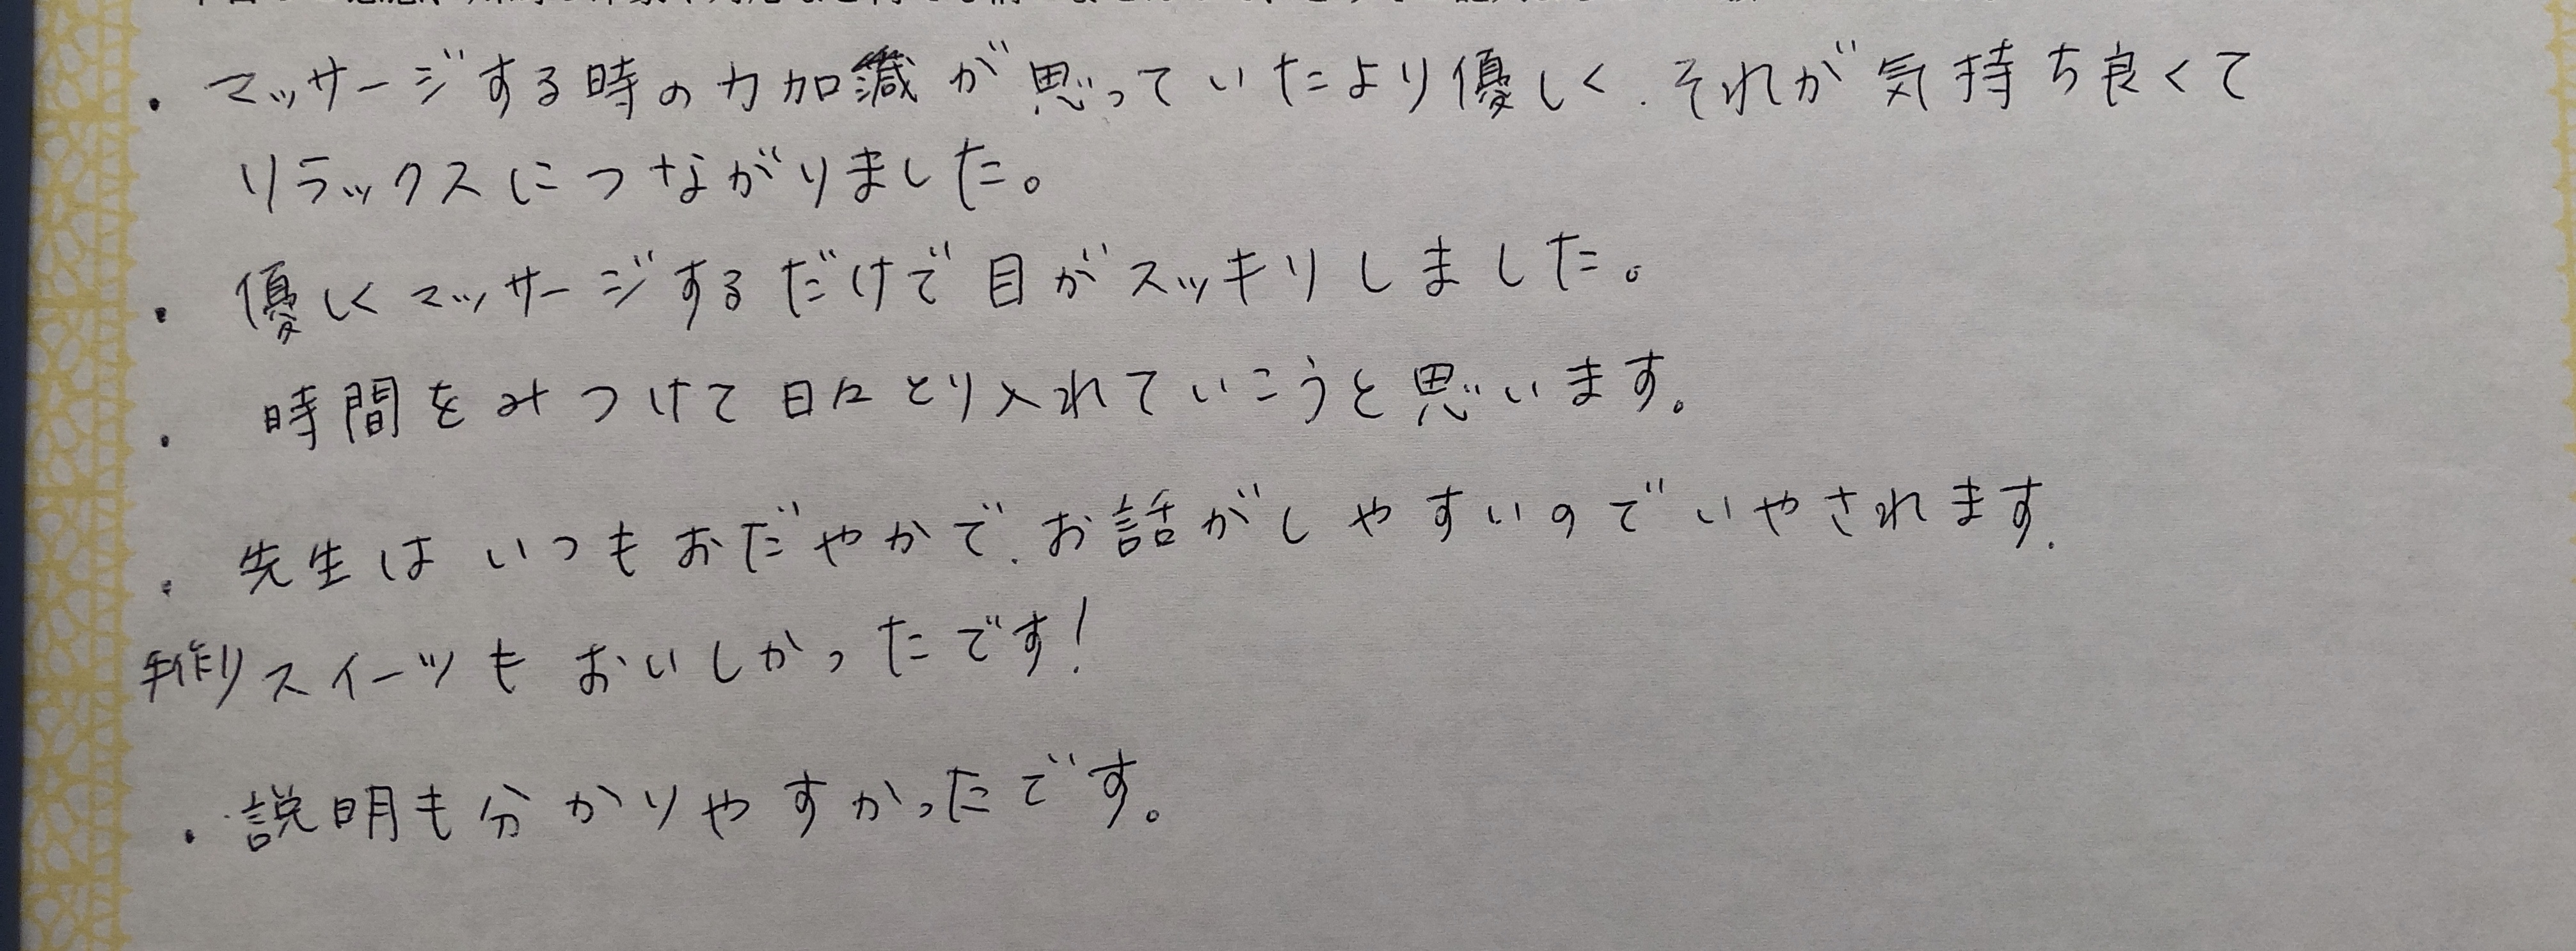 ・マッサージする時の力加減が思っていたより優しく、それが気持ち良くて
リラックスにつながりました。
・優しくマッサージするだけで目がスッキリしました。
・時間をみつけて日々とり入れていこうと思います。
・先生はいつもおだやかで、お話がしやすいのでいやされます。
手作りスイーツもおいしかったです!
・説明も分かりやすかったです。